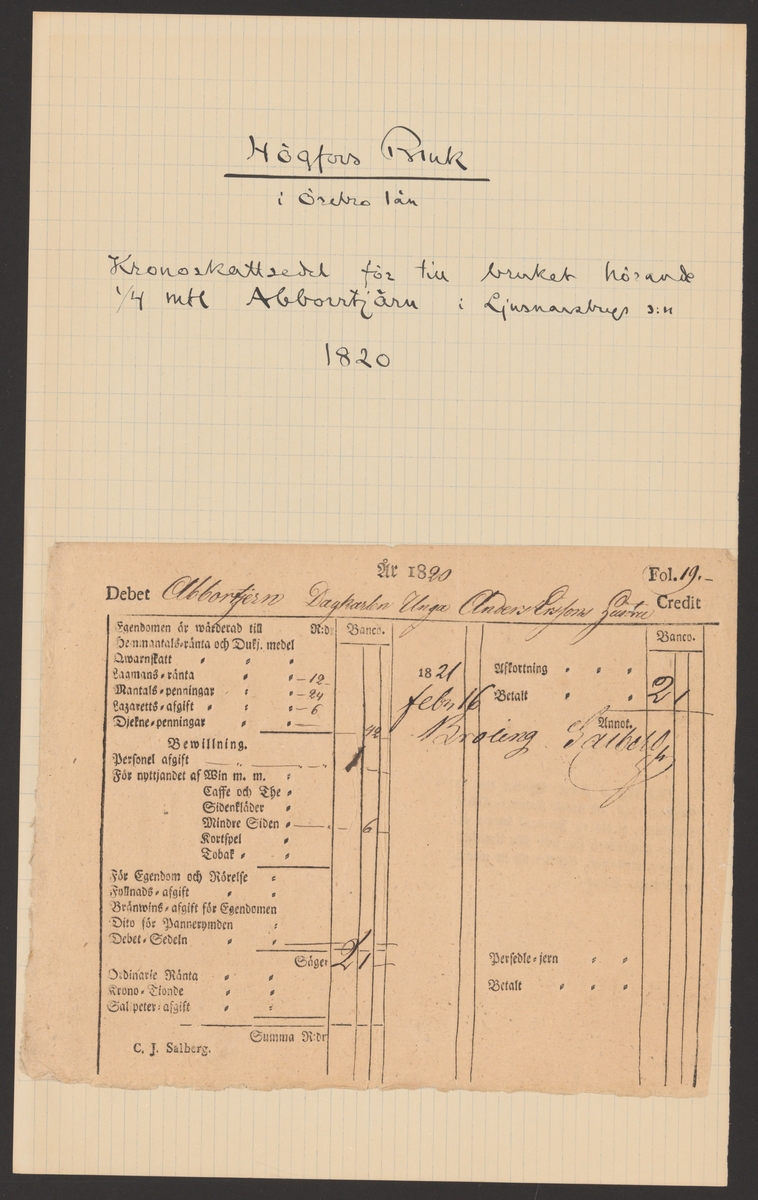 Högfors Bruk
i Örebro län
Kronoskattsedel för till bruket hörande
1/4 mtl Abborrtjärn i Ljusnarsbergs s:n
1820
År 1820
Fol. 19.
Debet Abbortjern Dagkarlen Unga Anders Ersons Credit
Egendomen är wärderad till R:dr Banco. Banco.
Hemmantals-ränta och Dukj. medel
Qwarnskatt
Laamans-ränta 12 1821 Afkortning
Mantals-penningar 24 Betalt 2 1
Lazaretts-afgift 6 febr 16
Djekne-penningar Annot.
42 Broling Salberg
Bewillning.
Personel afgift 1
För nyttjandet af Win m. m.
Caffe och The
Sidenkläder
Mindre Siden 6
Kortspel
Tobak
För Egendom och Rörelse
Follnads-afgift
Bränwins-afgift för Egendomen
Dito för Pannerymden
Debet-Sedeln 1
Säger 2 1 Persedle-jern
Ordinarie Ränta
Krono-Tionde Betalt
Salpeter-afgift
Summa R:dr
C. J. Salberg.